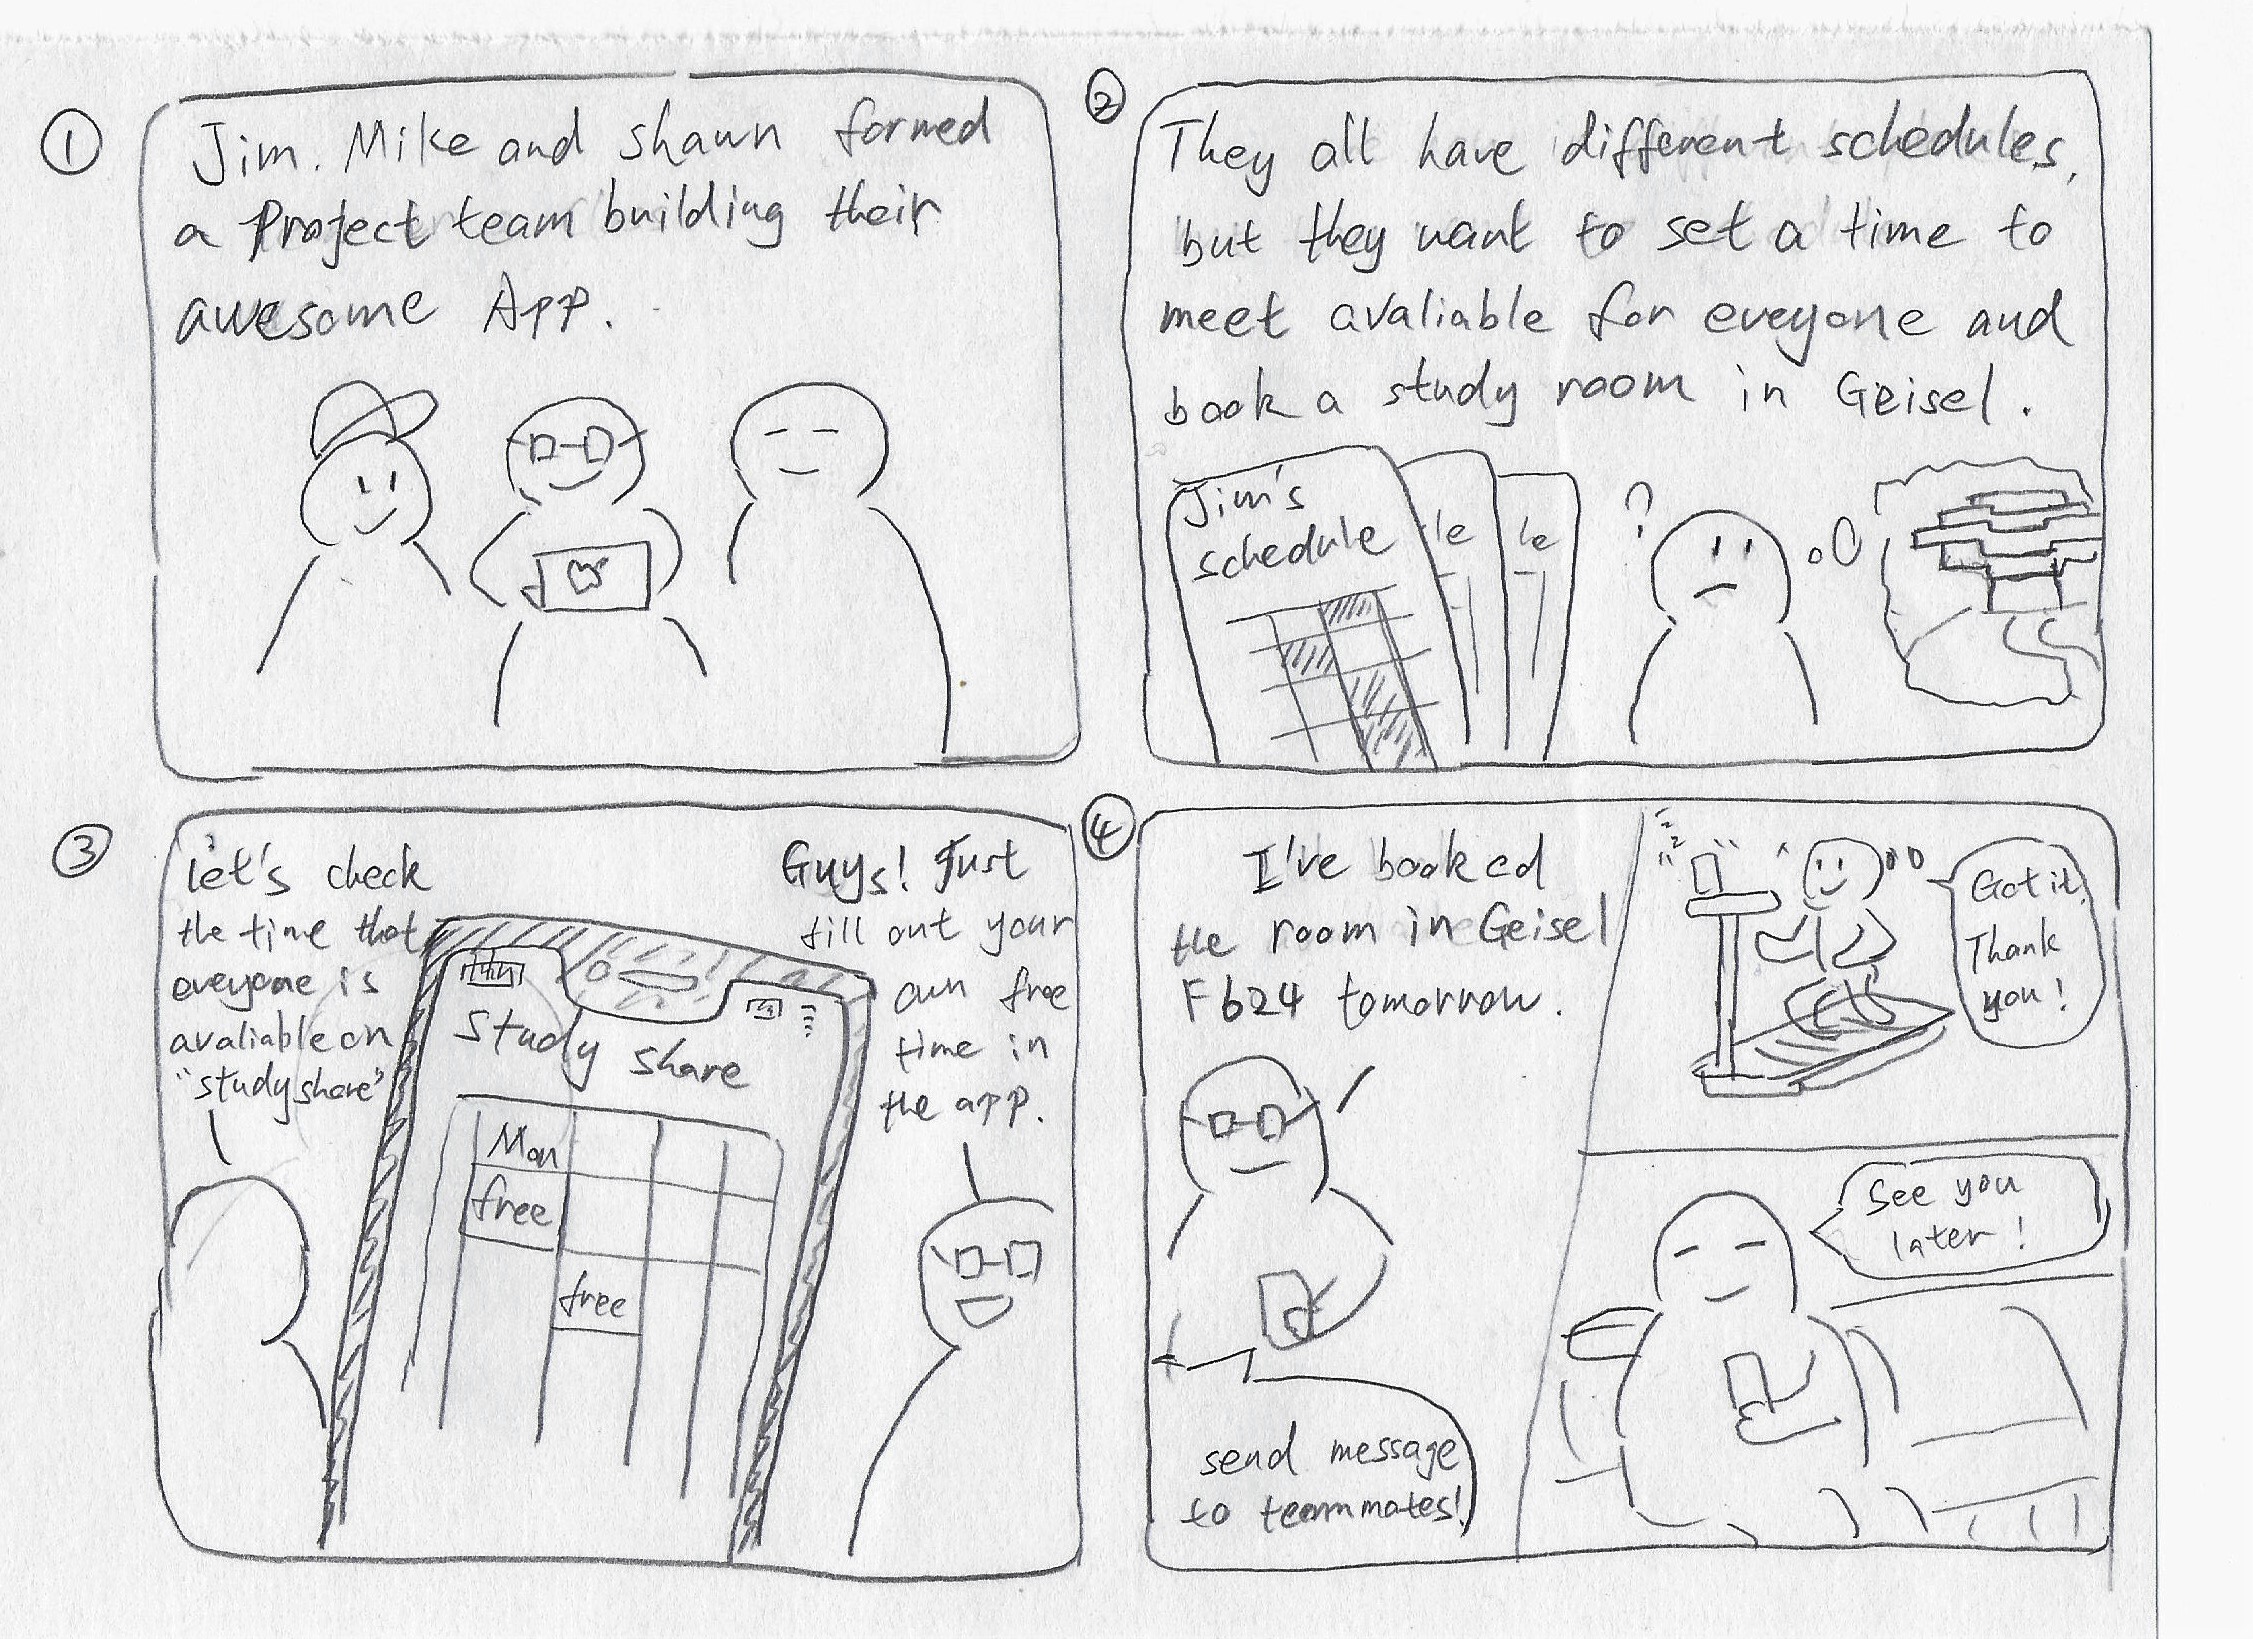 ①
Jim. Mike and shawn formed
a Project team building their
awesome App.
②
They all have different schedules,
but they want to set a time to
meet avaliable for eveyone and
book a study room in Geisel.
Jim's
schedule
le
le
?
③
let's check
the time that
eveyone is
avaliable on
"study share"
Guys! Just
fill out your
own free
time in
the app.
Study share
Mon
free
free
④
I've booked
the room in Geisel
F624 tomorrow.
send message
to teammates!
Got it,
Thank
you!
See you
later!